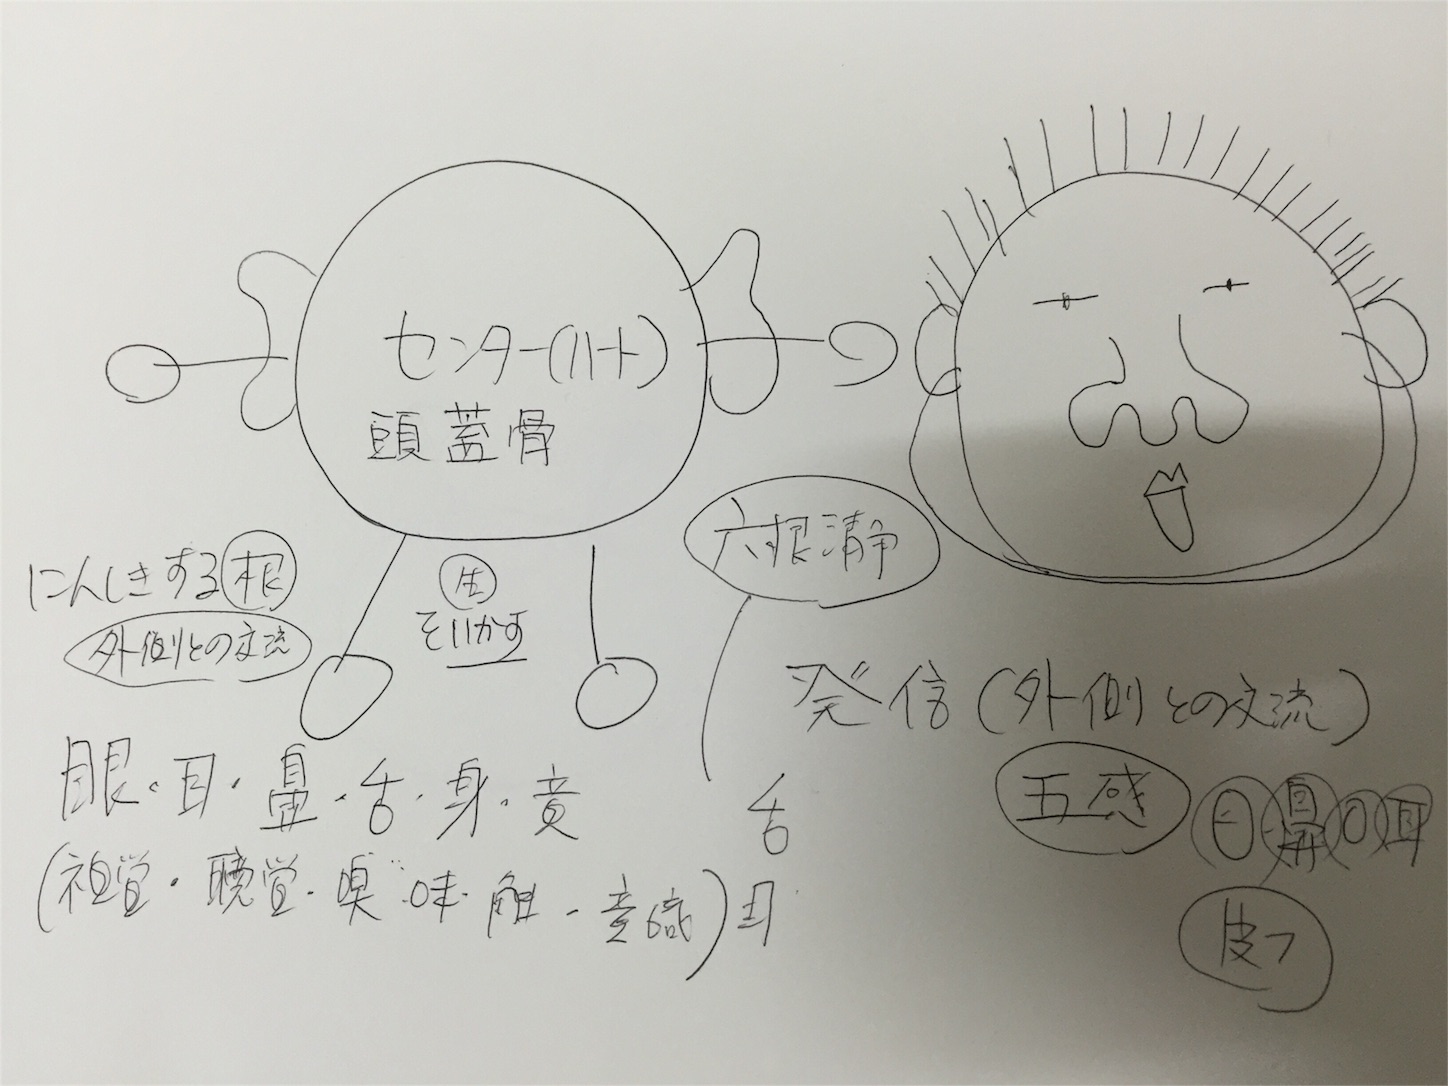 センター(ハート)
頭蓋骨
にんしきする根
外側との交流
生
そ
六根清浄
発信(外側との交流)
眼・耳・鼻・舌・身・意
(視覚・聴覚・嗅・味・触・意識)
舌
耳
五感
目鼻口耳
皮フ